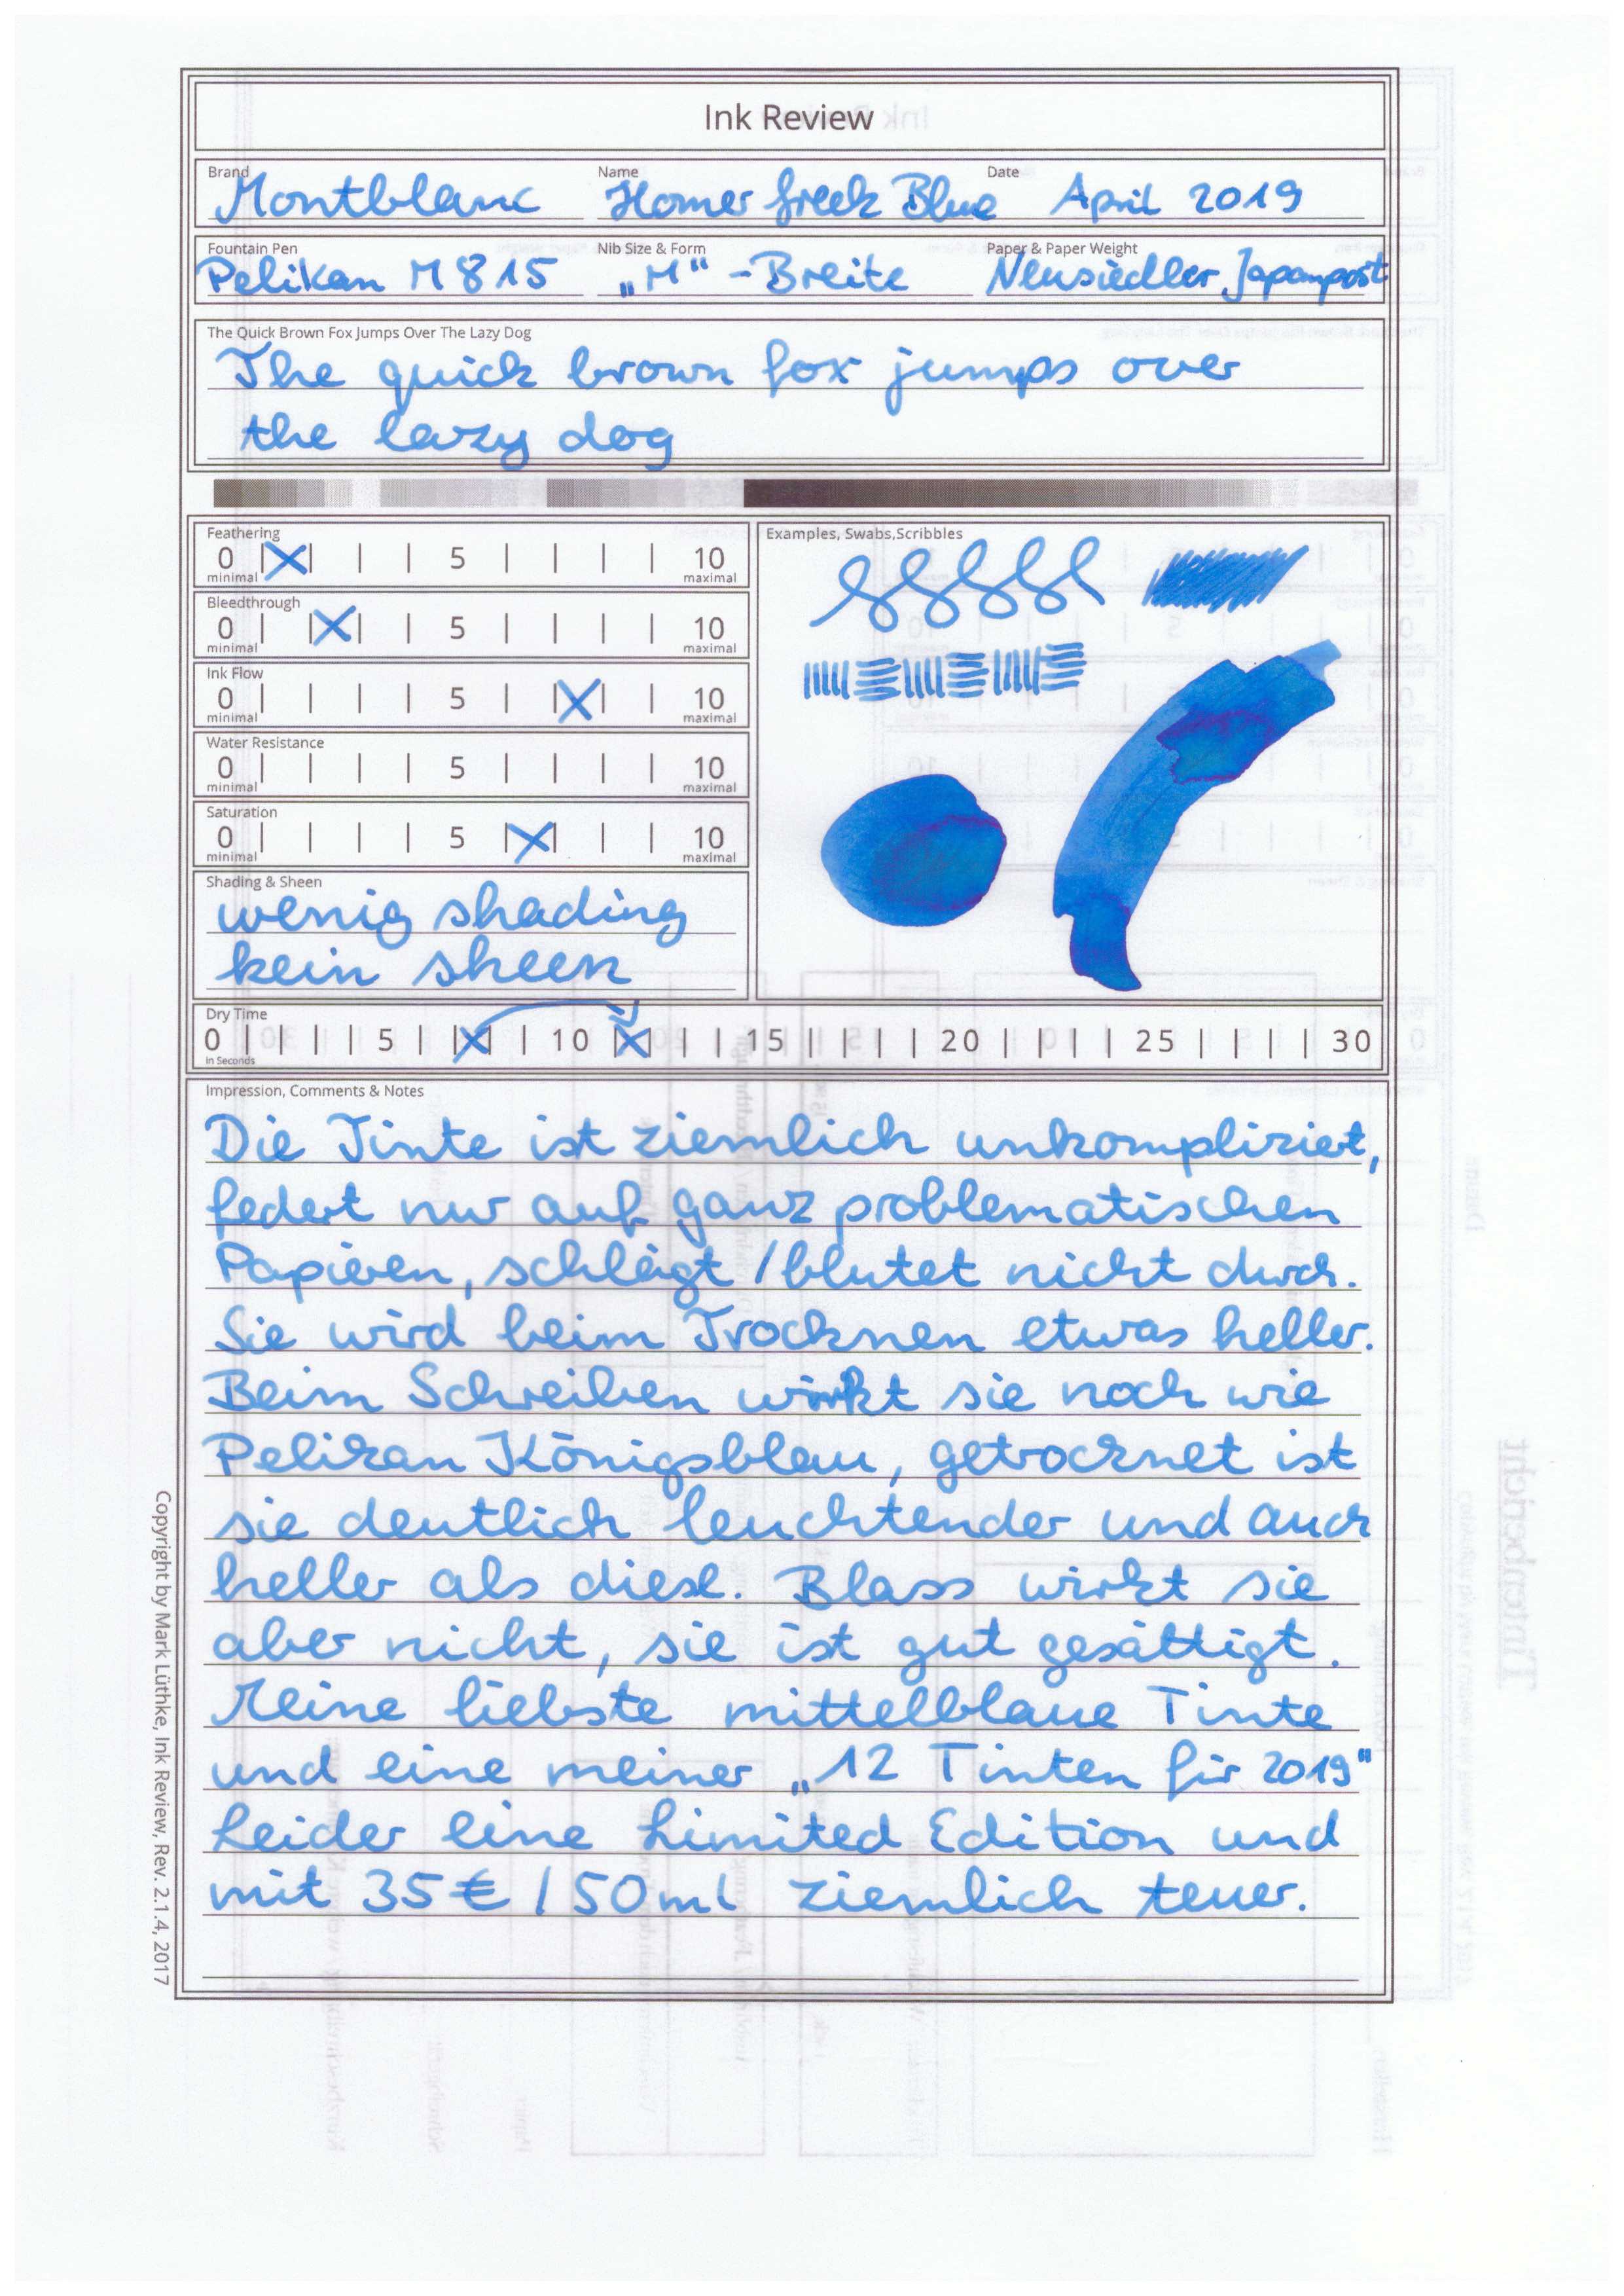 Ink Review
Brand Name Date
Montblanc Homer Greek Blue April 2019
Fountain Pen Nib Size & Form Paper & Paper Weight
Pelikan M815 „M“-Breite Neusiedler Japanpost
The Quick Brown Fox Jumps Over The Lazy Dog
The quick brown fox jumps over
the lazy dog
Feathering
0 | | | | 5 | | | | 10
minimal maximal
Bleedthrough
0 | | | | 5 | | | | 10
minimal maximal
Ink Flow
0 | | | | 5 | | | | 10
minimal maximal
Water Resistance
0 | | | | 5 | | | | 10
minimal maximal
Saturation
0 | | | | 5 | | | | 10
minimal maximal
Shading & Sheen
wenig shading
kein sheen
Examples, Swabs,Scribbles
Dry Time
0 | | | | 5 | | | | 10 | | | | 15 | | | | 20 | | | | 25 | | | | 30
in Seconds
Impression, Comments & Notes
Die Tinte ist ziemlich unkompliziert,
federt nur auf ganz problematischen
Papieren, schlägt/blutet nicht durch.
Sie wird beim Trocknen etwas heller.
Beim Schreiben wirkt sie noch wie
Pelikan Königsblau, getrocknet ist
sie deutlich leuchtender und auch
heller als diese. Blass wirkt sie
aber nicht, sie ist gut gesättigt.
Meine liebste mittelblaue Tinte
und eine meiner „12 Tinten für 2019"
Leider eine Limited Edition und
mit 35€/50ml ziemlich teuer.
Copyright by Mark Lüthke, Ink Review, Rev. 2.1.4, 2017
Tintenbericht